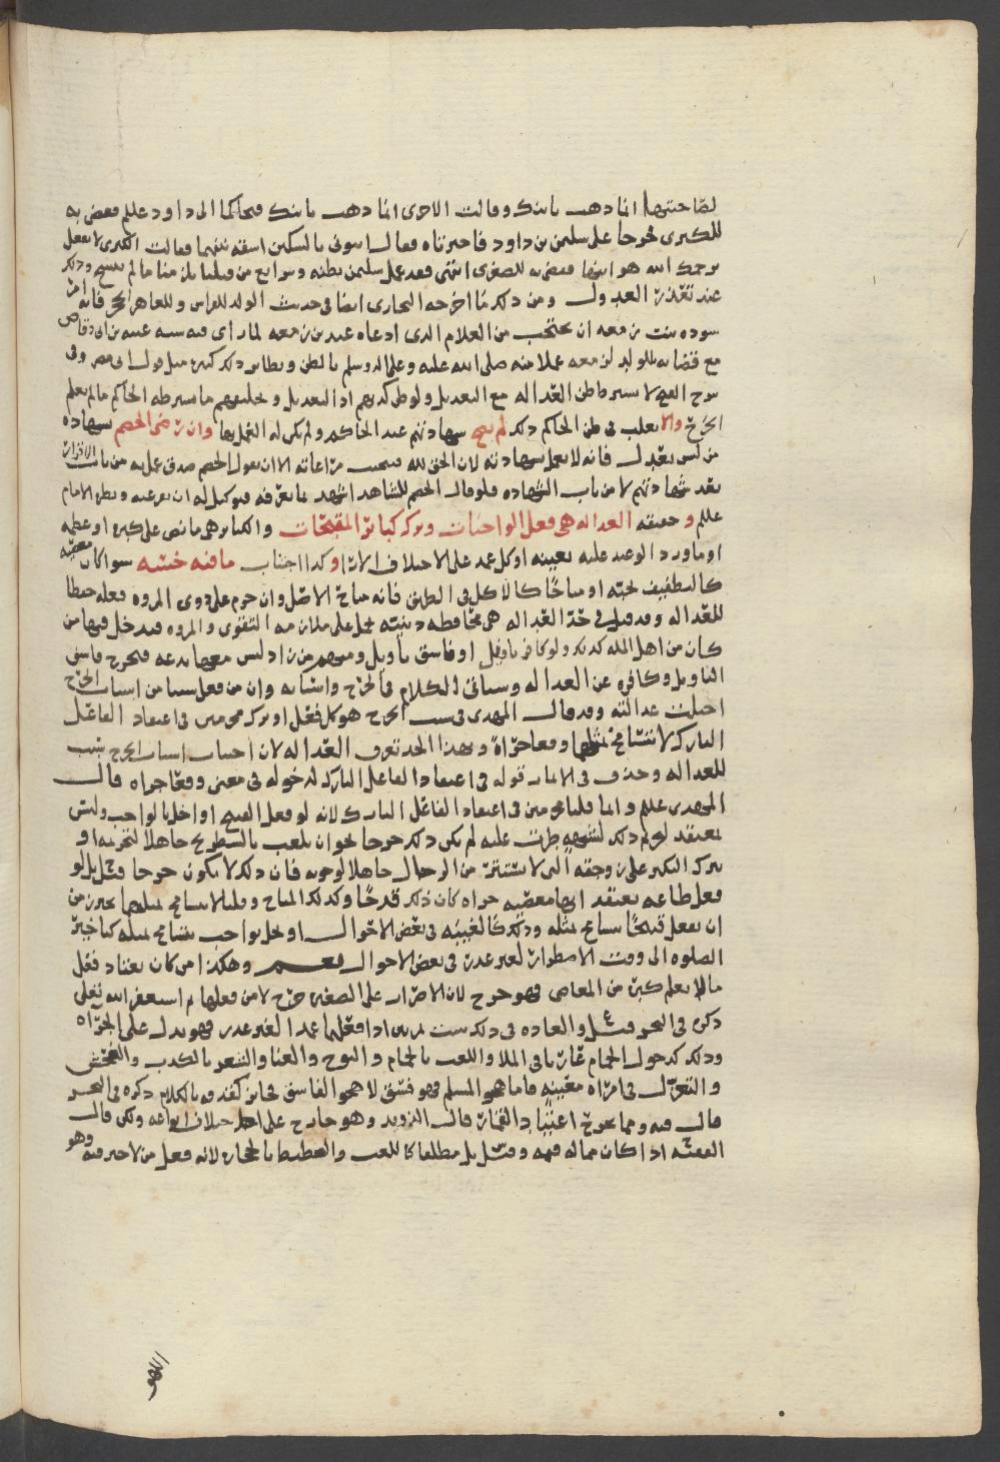 لصاحبتها انما ذهب بابنك وقالت الاخرى انما ذهب بابنك فتحاكما الى داود عللم فقضى به
للكبرى فخرجا على سليمن بن داود فاخبرتاه فقال ايتوني بالسكين اشقه بينهما فقالت الصغرى لا تفعل
يرحمك الله هو ابنها فقضى به للصغرى انتهى فقد عمل سليمن بظنه وشرايع من قبلنا يلزمنا ما لم ينسخ وذلك
عند تعذر العدول ومن ذلك ما اخرجه البخاري ايضا في حديث الولد للفراش وللعاهر الحجر فانه امر
سوده بنت زمعه ان تحتجب من الغلام الذي ادعاه عبد بن زمعه لما راى فيه شبه عتبه بن ابي وقاص
مع قضايه بالولد لزمعه عملا منه صلى الله عليه وعلى اله وسلم بالظن ونظاير ذلك كثيره
شرح الفتح لا يشترط ظن العداله مع التعديل ولو ظن كذبهم اذ التعديل وتحليفهم ما شرطه الحاكم ما لم يعلم
الجرح والا يغلب في ظن الحاكم ذلك لم تصح شهادتهم عند الحاكم ولم يكن له العمل بها وان رضى الخصم بشهاده
من ليس بعدل فانه لا يعمل بشهادته لان الحق لله فيجب مراعاته الا ان يقول الخصم صدق عمل به من باب الاقرار
بعد شهادتهم لا من باب الشهاده فلو قال الخصم للشاهد اشهد بما تعرفه فتوكيل له ان يقر عنه ونظر الامام
عللم وحقيقه العداله هي فعل الواجبات وترك كبائر المقبحات والكبائر هي ما نص على كبره او عظمه
او ما ورد الوعيد عليه بعينه او كل عمد على الاختلاف وكذا اجتناب ما فيه خسه سوا كان معصيه
كالتطفيف بحبه او مباحا كالاكل في الطريق فانه مباح الاصل وان حرم على ذوي المروه فعله حفظا
للعداله وقد قيل في حد العداله هي محافظه دينيه تحمل على ملازمه التقوى والمروه فيدخل فيها من
كان من اهل المله ولو كافر تاويل او فاسق تاويل ومنهم من زاد ليس معها بدعه فتخرج فاسق
التاويل وكافره عن العداله وسياتي الكلام في الجرح واسبابه وان من فعل سببا من اسباب الجرح
اختلت عدالته وقد قال المهدي في سبب الجرح هو كل فعل او ترك محرمين في اعتقاد الفاعل
التارك لا يتسامح بمثلهما وقعا جراة وبهذا الحد تعرف العداله لان اجتناب اسباب الجرح سبب
للعداله وحذف في الاثمار قوله في اعتقاد الفاعل التارك لدخوله في معنى وقعا جراه قال
المهدي عللم وانما قلنا محرمين في اعتقاد الفاعل التارك لانه لو فعل القبيح او اخل بالواجب وليس
بمعتقد لتحريم ذلك لشبهه طرت عليه لم يكن ذلك جرحا نحو ان يلعب بالشطرنج جاهلا لتحريمه او
يترك النكير على زوجته التي لا تستتر من الرجال جاهلا لوجوبه فان ذلك لا يكون جرحا وقيل بل لو
فعل طاعه يعتقد انها معصيه جراه كان ذلك قدحا وكذلك المباح وقلنا لا يتسامح بمثلهما يحترز من
ان يفعل قبيحا يتسامح بمثله وذلك كالغيبه في بعض الاحوال او يخل بواجب يتسامح بمثله كتاخير
الصلوه الى وقت الاضطرار لغير عذر في بعض الاحوال نعم وهكذا من كان يعتاد فعل
ما لا يعلم كبره من المعاصي فهو جرح لان الاصرار على الصغير جرح لا من فعلها ثم استغفر الله تعلى
ذكره في البحر وقيل والعاده في ذلك تثبت بمرتين اذا فعلهما عمدا لغير عذر فهو يدل على الجراه
وذلك كدخول الحمام عاريا في الملا واللعب بالحمام والنوح والغنا والشعر بالكذب والفحش
والتغزل في امراه معينه فاما هجو المسلم فهو فسق لا هجو الفاسق فجايز ذكره في البحر
قال فيه ومما يجرح اعتياد القمار قال الزويد وهو جارح على اختلاف انواعه ولكن قال
الفقيه اذا كان مما له قيمه وقيل بل مطلقا كاللعب بالحجاره لانه فعل من لا خير فيه وهو
اللهو